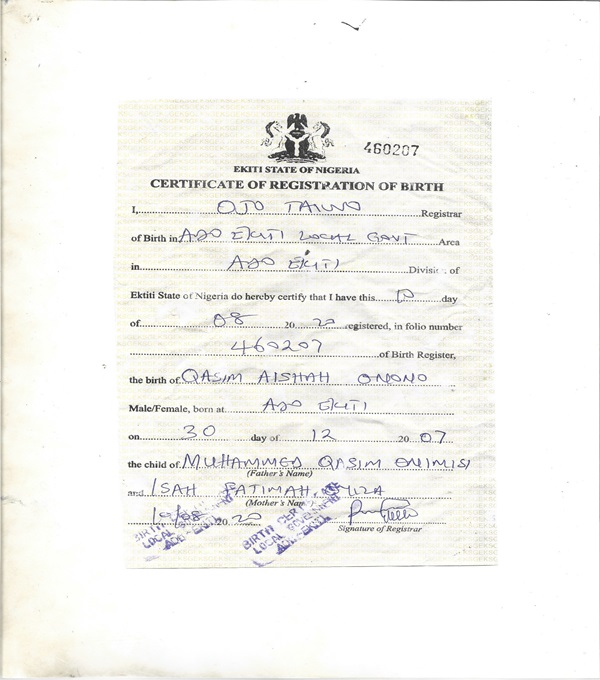 460207
EKITI STATE OF NIGERIA
CERTIFICATE OF REGISTRATION OF BIRTH
I, OJO TAIWO Registrar
of Birth in ADO EKITI LOCAL GOVT Area
in ADO EKITI Division of
Ektiti State of Nigeria do hereby certify that I have this 10 day
of 08 20 20 registered, in folio number
460207 of Birth Register,
the birth of QASIM AISHAH ONONO
Male/Female, born at ADO EKITI
on 30 day of 12 20 07
the child of MUHAMMED QASIM ONIMISI
(Father's Name)
and ISAH FATIMAH
(Mother's Name)
10/08 20 20
Signature of Registrar
BIRTH
LOCAL GOVERNMENT
ADO-EKITI
BIRTH
LOCAL GOVERNMENT
ADO-EKITI